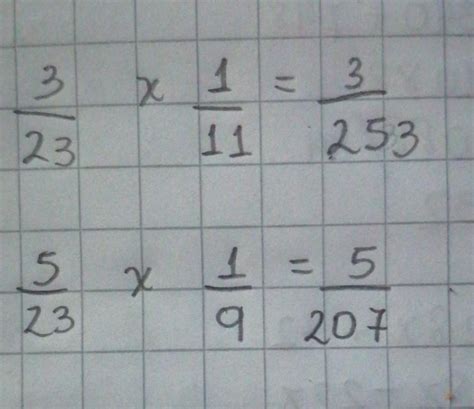 3/23 x 1/11 = 3/253
5/23 x 1/9 = 5/207